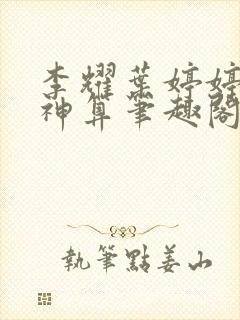 李耀葉婷婷
神算筆趣閣
執筆點姜山